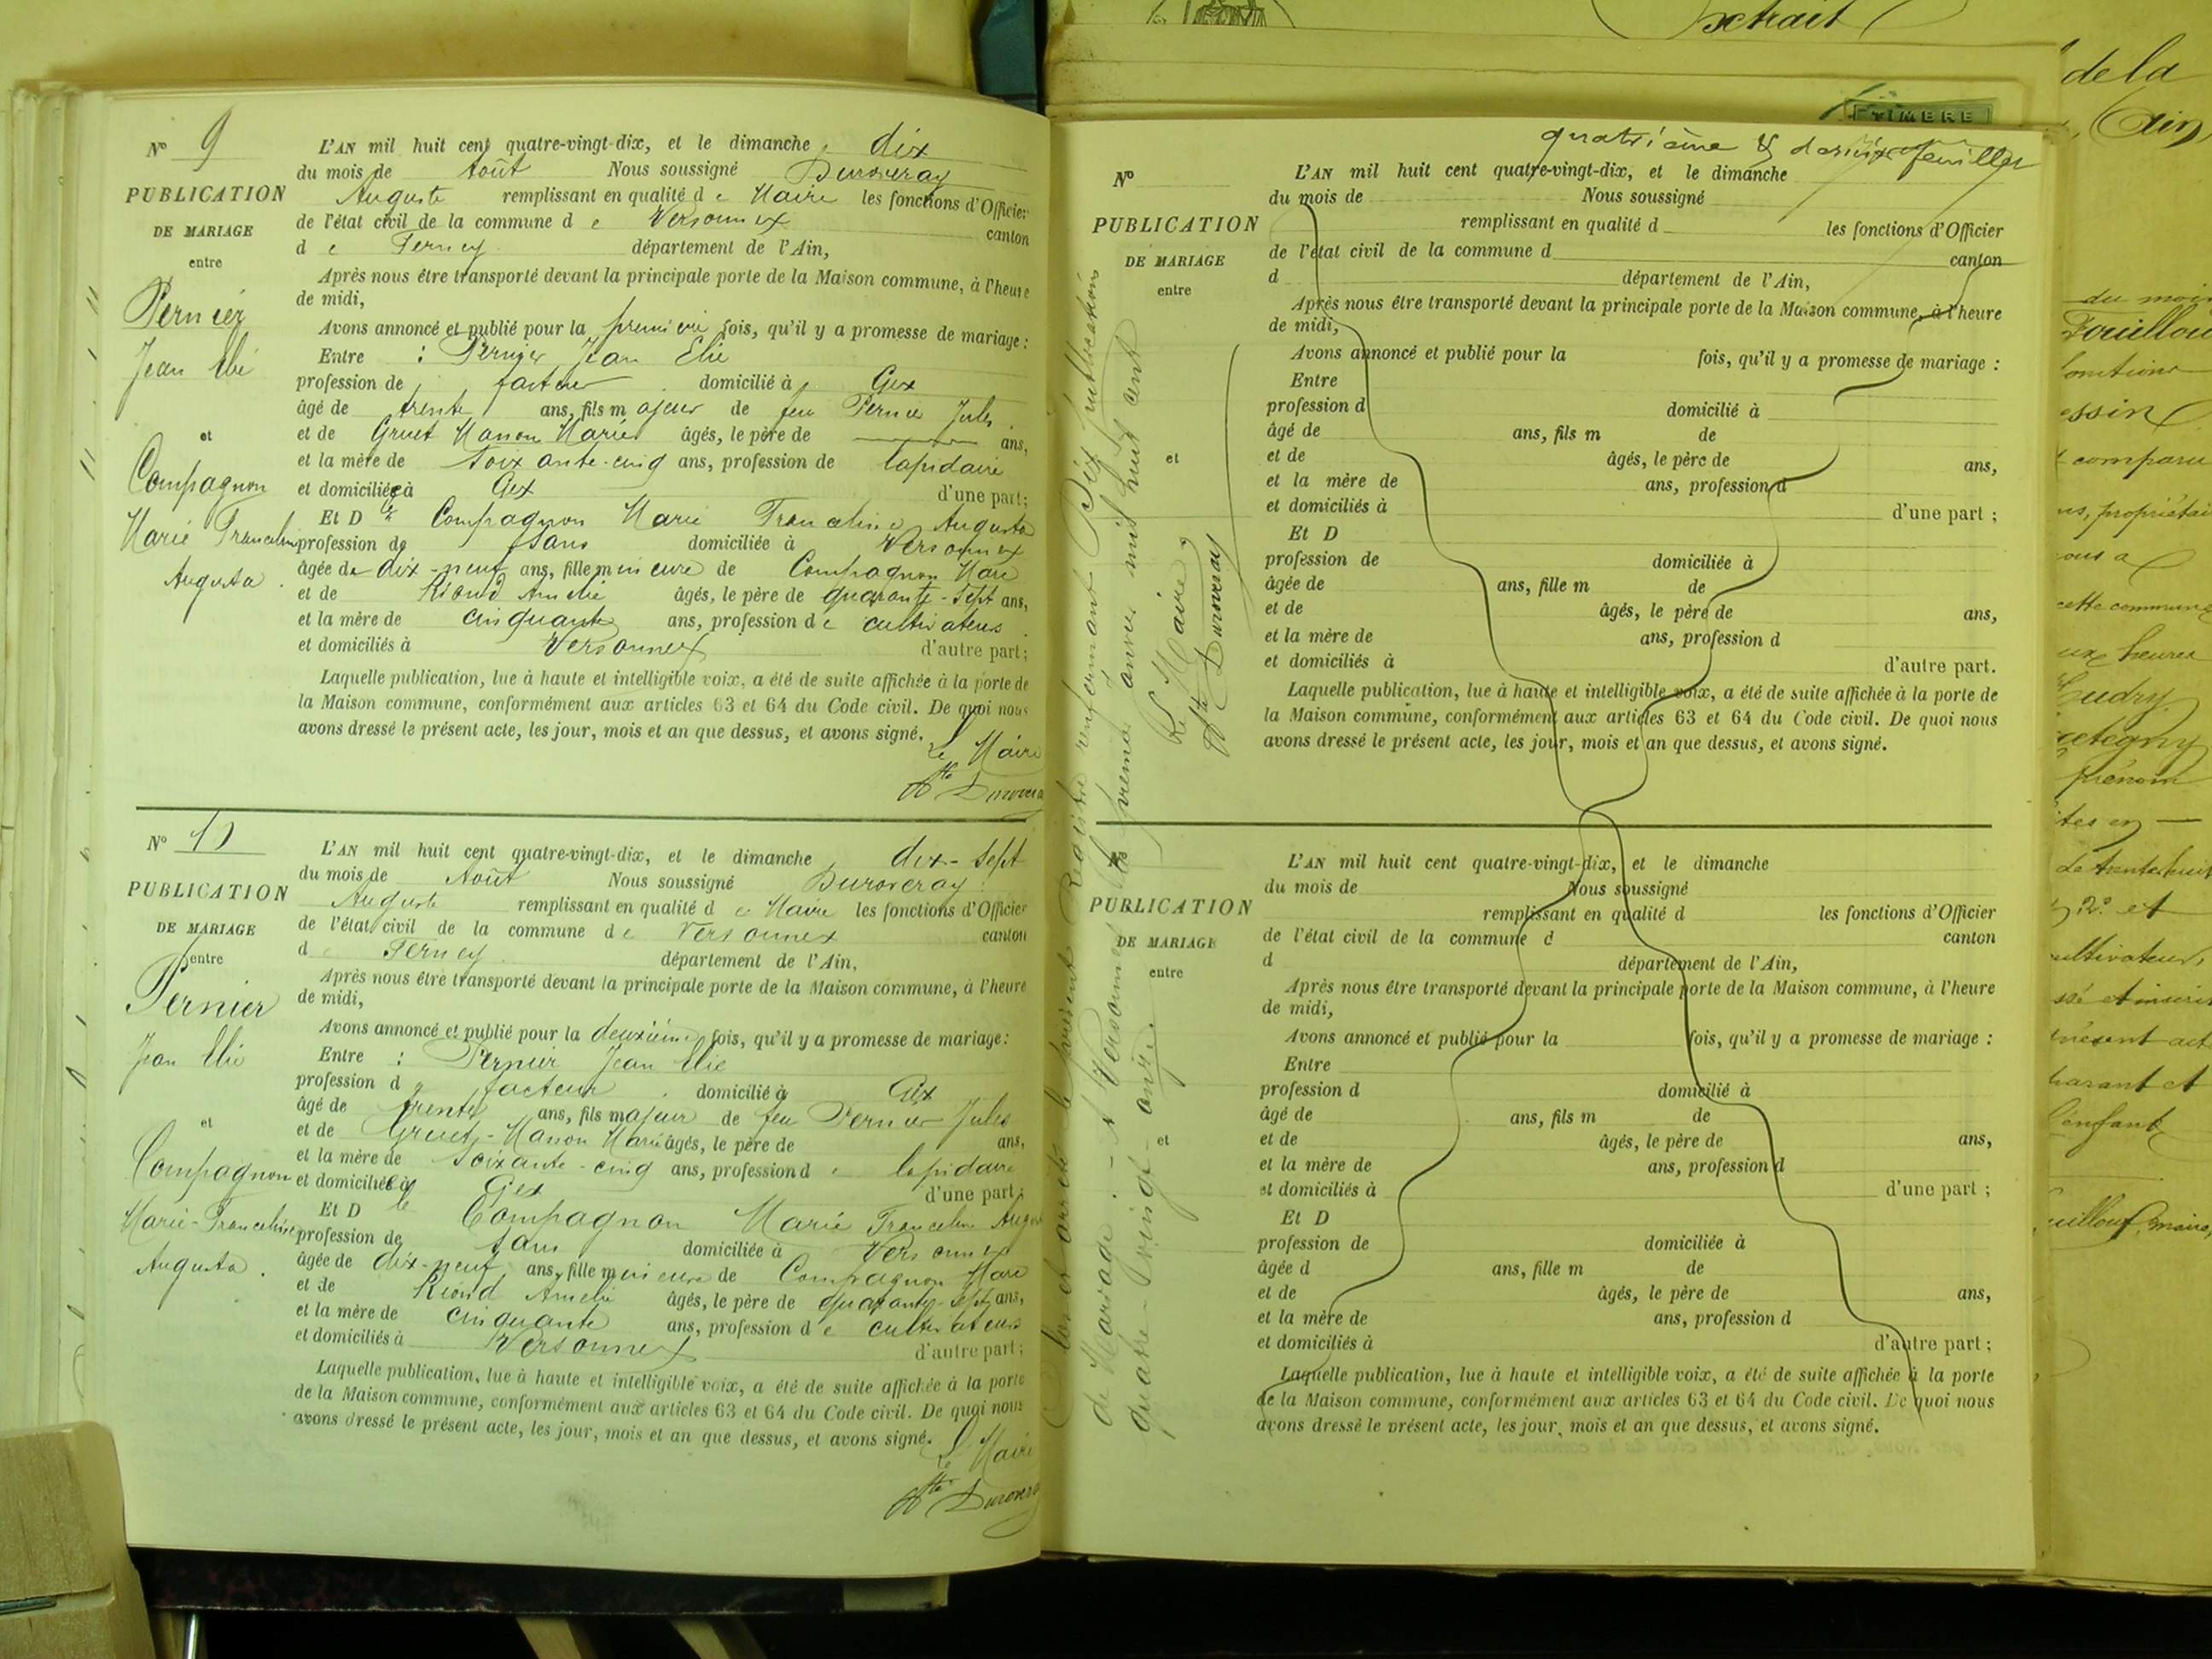 N° 9
PUBLICATION
DE MARIAGE
entre
Pernier
Jean Elie
et
Compagnon
Marie Franceline
Augusta.
L'AN mil huit cent quatre-vingt-dix, et le dimanche dix
du mois de Août Nous soussigné Duroveray
Auguste remplissant en qualité de Maire les fonctions d'Officier
de l'état civil de la commune de Versonnex canton
de Ferney département de l'Ain,
Après nous être transporté devant la principale porte de la Maison commune, à l'heure
de midi,
Avons annoncé et publié pour la première fois, qu'il y a promesse de mariage :
Entre : Pernier Jean Elie
profession de facteur domicilié à Gex
âgé de trente ans, fils majeur de feu Pernier Jules
et de Gruet Masson Marie âgés, le père de ans,
et la mère de Soixante-cinq ans, profession de lapidaire
et domiciliée à Gex d'une part;
Et Dlle Compagnon Marie Franceline Augusta
profession de sans domiciliée à Versonnex
âgée de dix-neuf ans, fille mineure de Compagnon Marc
et de Riond Amélie âgés, le père de quarante-sept ans,
et la mère de cinquante ans, profession de cultivateurs
et domiciliés à Versonnex d'autre part;
Laquelle publication, lue à haute et intelligible voix, a été de suite affichée à la porte de
la Maison commune, conformément aux articles 63 et 64 du Code civil. De quoi nous
avons dressé le présent acte, les jour, mois et an que dessus, et avons signé.
Le Maire
Ate Duroveray
N° 10
PUBLICATION
DE MARIAGE
entre
Pernier
Jean Elie
et
Compagnon
Marie-Franceline
Augusta.
L'AN mil huit cent quatre-vingt-dix, et le dimanche dix-sept
du mois de Août Nous soussigné Duroveray
Auguste remplissant en qualité de Maire les fonctions d'Officier
de l'état civil de la commune de Versonnex canton
d Ferney département de l'Ain,
Après nous être transporté devant la principale porte de la Maison commune, à l'heure
de midi,
Avons annoncé et publié pour la deuxième fois, qu'il y a promesse de mariage :
Entre : Pernier Jean Elie
profession de facteur domicilié à Gex
âgé de trente ans, fils majeur de feu Pernier Jules
et de Gruet-Masson Marie âgés, le père de ans,
et la mère de Soixante-cinq ans, profession de lapidaire
et domiciliée à Gex d'une part;
Et Dlle Compagnon Marie Franceline Augusta
profession de sans domiciliée à Versonnex
âgée de dix-neuf ans, fille mineure de Compagnon Marc
et de Riond Amélie âgés, le père de quarante-sept ans,
et la mère de cinquante ans, profession de cultivateurs
et domiciliés à Versonnex d'autre part;
Laquelle publication, lue à haute et intelligible voix, a été de suite affichée à la porte
de la Maison commune, conformément aux articles 63 et 64 du Code civil. De quoi nous
avons dressé le présent acte, les jour, mois et an que dessus, et avons signé.
Le Maire
Ate Duroveray
quatrième & dernier feuillet
N°
PUBLICATION
DE MARIAGE
entre
et
L'AN mil huit cent quatre-vingt-dix, et le dimanche
du mois de Nous soussigné
remplissant en qualité d les fonctions d'Officier
de l'état civil de la commune d canton
d département de l'Ain,
Après nous être transporté devant la principale porte de la Maison commune, à l'heure
de midi,
Avons annoncé et publié pour la fois, qu'il y a promesse de mariage :
Entre
profession d domicilié à
âgé de ans, fils m de
et de âgés, le père de ans,
et la mère de ans, profession d
et domiciliés à d'une part ;
Et D
profession de domiciliée à
âgée de ans, fille m de
et de âgés, le père de ans,
et la mère de ans, profession d
et domiciliés à d'autre part.
Laquelle publication, lue à haute et intelligible voix, a été de suite affichée à la porte de
la Maison commune, conformément aux articles 63 et 64 du Code civil. De quoi nous
avons dressé le présent acte, les jour, mois et an que dessus, et avons signé.
N°
PUBLICATION
DE MARIAGE
entre
et
L'AN mil huit cent quatre-vingt-dix, et le dimanche
du mois de Nous soussigné
remplissant en qualité d les fonctions d'Officier
de l'état civil de la commune d canton
d département de l'Ain,
Après nous être transporté devant la principale porte de la Maison commune, à l'heure
de midi,
Avons annoncé et publié pour la fois, qu'il y a promesse de mariage :
Entre
profession d domicilié à
âgé de ans, fils m de
et de âgés, le père de ans,
et la mère de ans, profession d
et domiciliés à d'une part ;
Et D
profession de domiciliée à
âgée d ans, fille m de
et de âgés, le père de ans,
et la mère de ans, profession d
et domiciliés à d'autre part ;
Laquelle publication, lue à haute et intelligible voix, a été de suite affichée à la porte
de la Maison commune, conformément aux articles 63 et 64 du Code civil. De quoi nous
avons dressé le présent acte, les jour, mois et an que dessus, et avons signé.
Clos et arrêté le présent Registre renfermant Dix publications
de Mariage - A Versonnex le premier janvier mil huit cent
quatre-vingt-onze
Le Maire,
Ate Duroveray
TIMBRE
Extrait
de la
Ain,
du mois
comparu
ns, propriétai
ous a
cette commune
ux heures
prénom
tes en —
de trente huit
2° et
ultivateur,
présent act
parant et
l'enfant
maire,